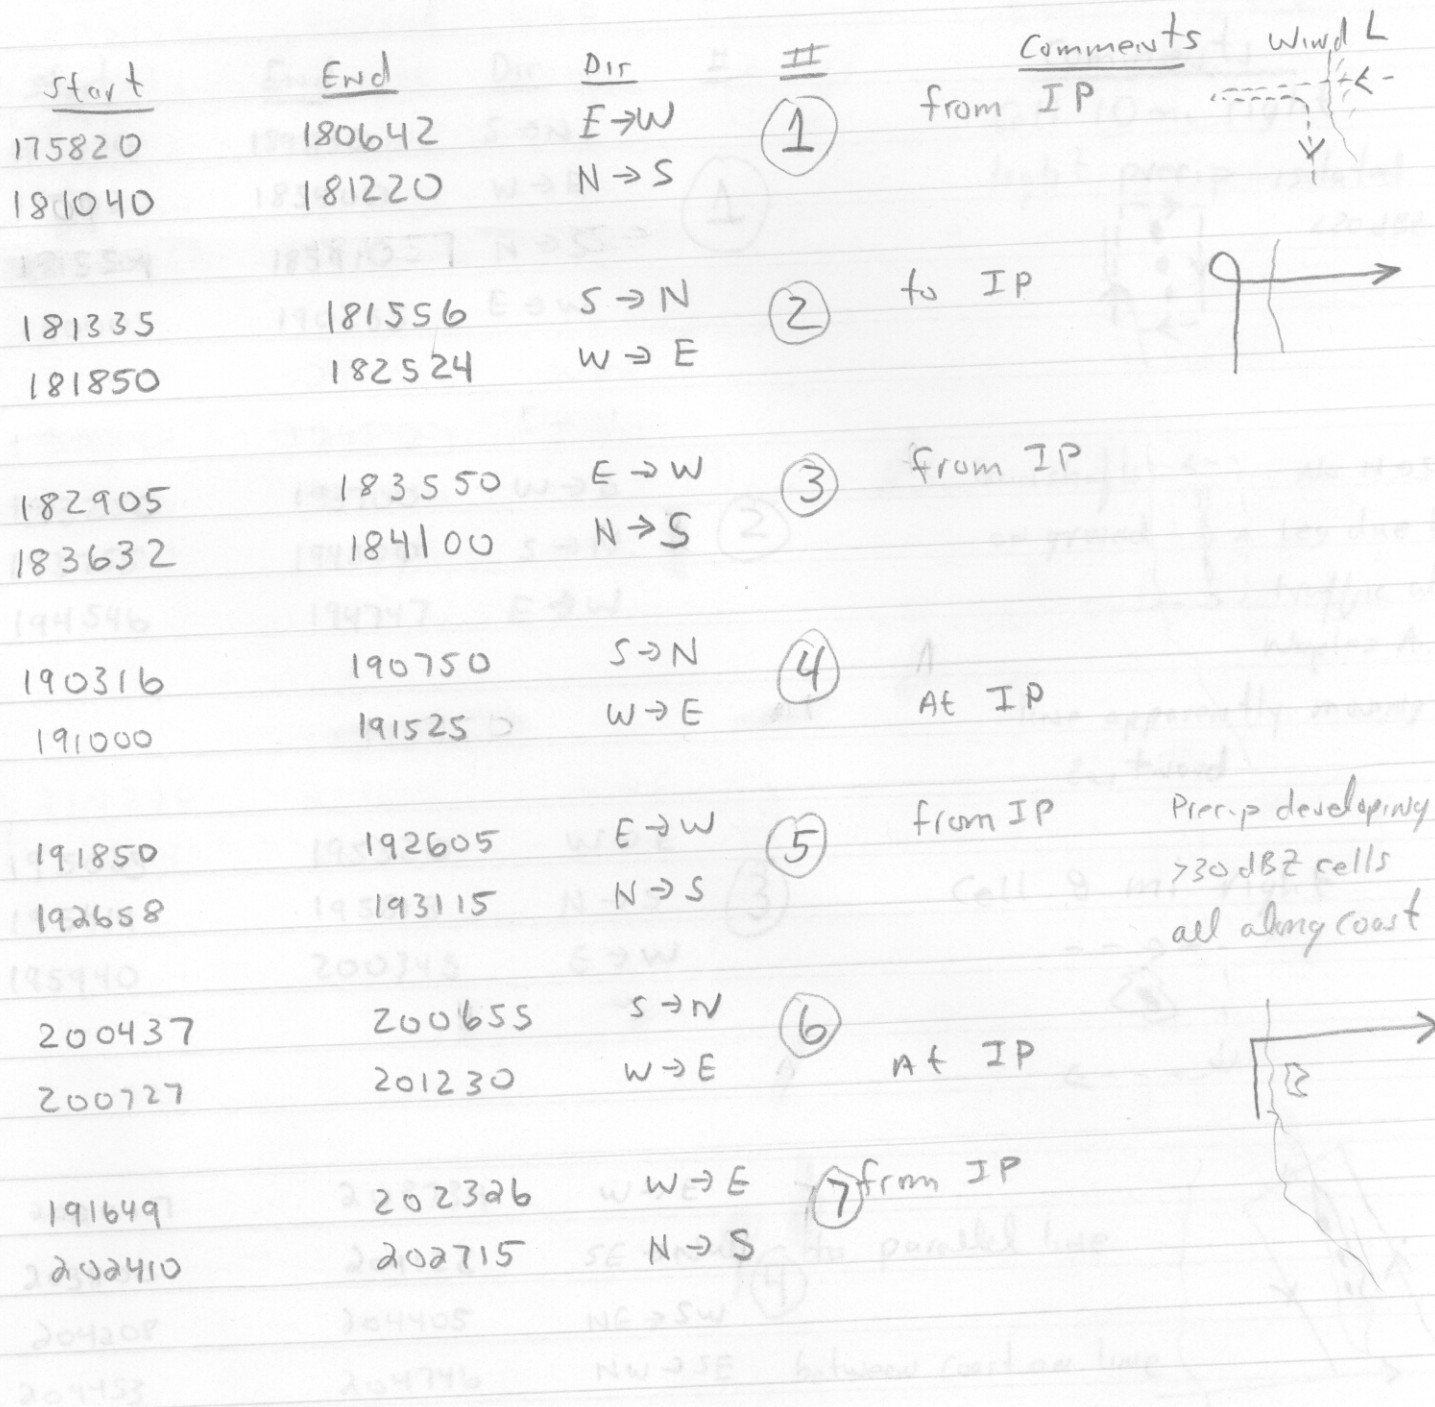 Start End Dir # Comments Wind L
175820 180642 E→W 1 from IP
181040 181220 N→S
181335 181556 S→N 2 to IP
181850 182524 W→E
182905 183550 E→W 3 from IP
183632 184100 N→S
190316 190750 S→N 4
191000 191525 W→E At IP
191850 192605 E→W 5 from IP Precip developing
>30 dBZ cells
192658 193115 N→S
all along coast
200437 200655 S→N 6
200727 201230 W→E At IP
191649 202326 W→E 7 from IP
202410 202715 N→S